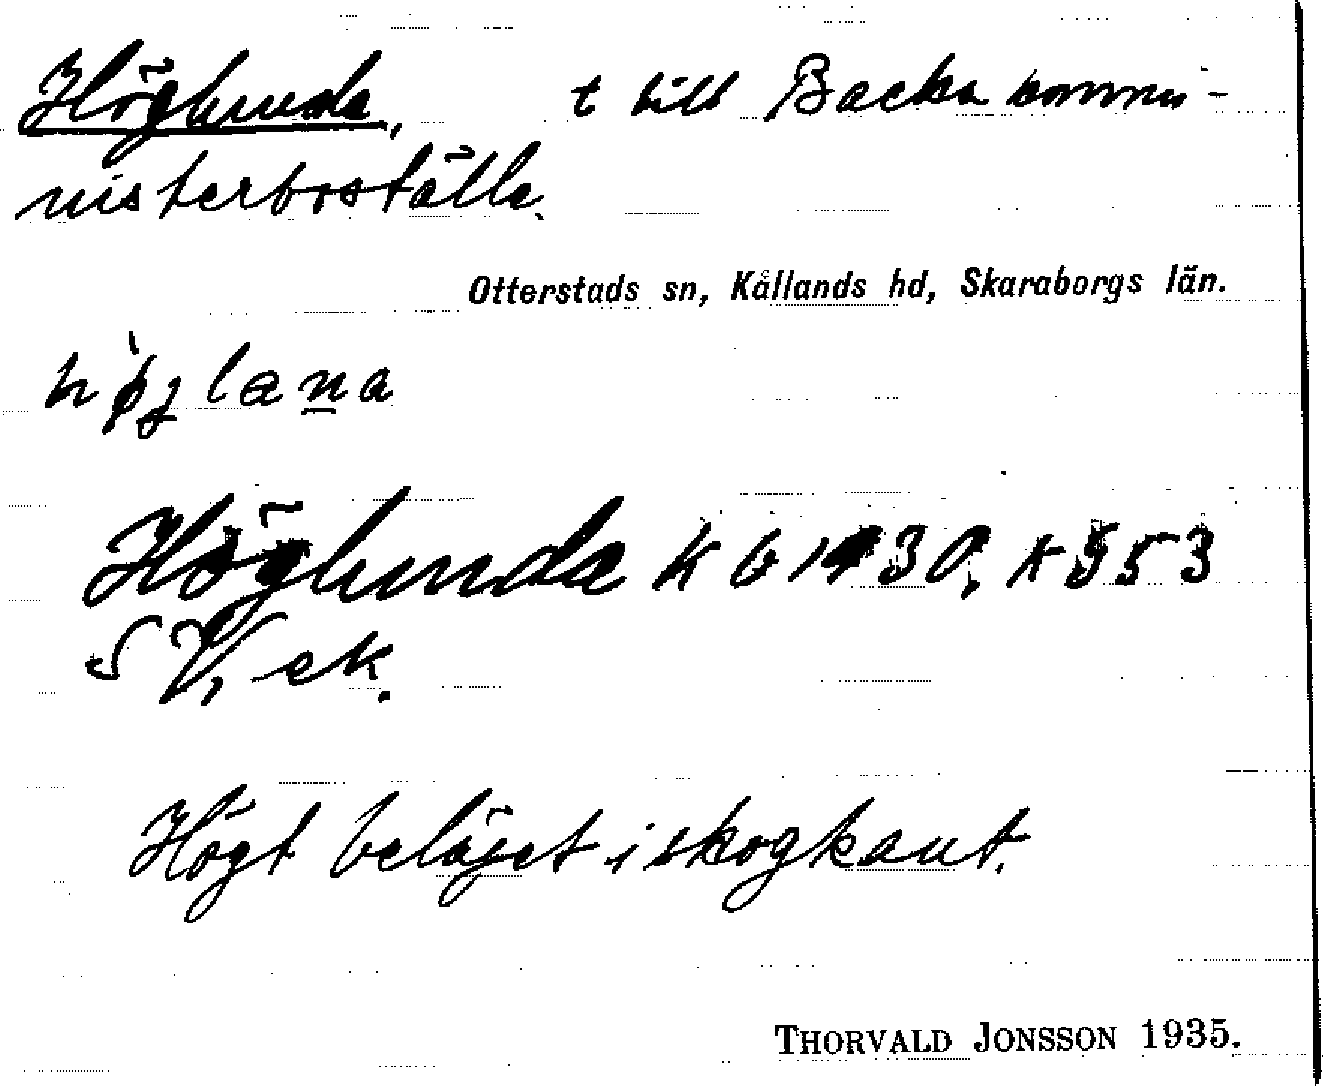 Höglunda, t till Backa kommi-
nisterboställe.
Otterstads sn, Kållands hd, Skaraborgs län.
Höglunda k b 1930,
ek.
Högt beläget i skogkant.
THORVALD JONSSON 1935.